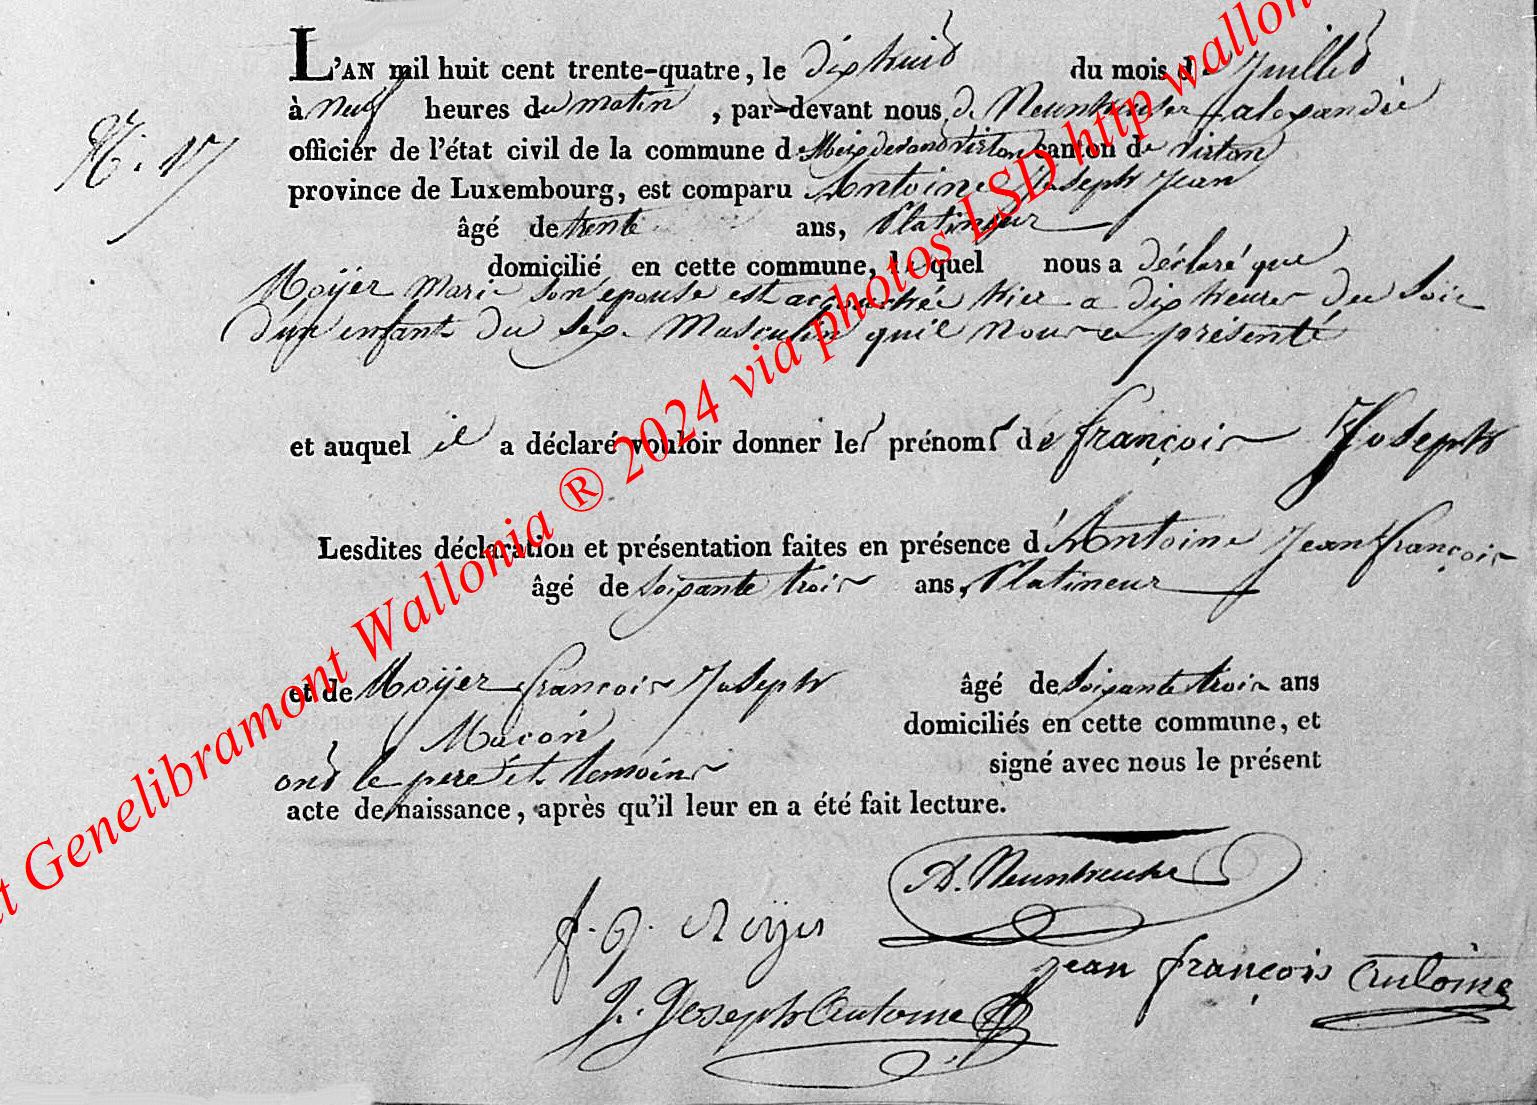 L'AN mil huit cent trente-quatre, le dix huit du mois de Juillet
N.° 17
à neuf heures du matin, par-devant nous, d. Neunheuser alexandre
officier de l'état civil de la commune de Meix devant virton canton de virton
province de Luxembourg, est comparu Antoine Joseph Jean
âgé de trente ans, Platineur
domicilié en cette commune, lequel nous a déclaré que
Moÿer Marie son epouse est accouchée hier a dix heures du soir
d'un enfant du sexe Masculin qu'il nous a présenté
et auquel il a déclaré vouloir donner les prénoms de françois Joseph
Lesdites déclaration et présentation faites en présence d'Antoine Jean françois
âgé de soixante trois ans, Platineur
et de Moÿer françois Joseph âgé de soixante trois ans
Maçon domiciliés en cette commune, et
ont le pere et temoins signé avec nous le présent
acte de naissance, après qu'il leur en a été fait lecture.
f. j. Moÿer
jean françois antoine
J. Joseph Antoine
Genelibramont Wallonia ® 2024 via photos LSD http wallonia